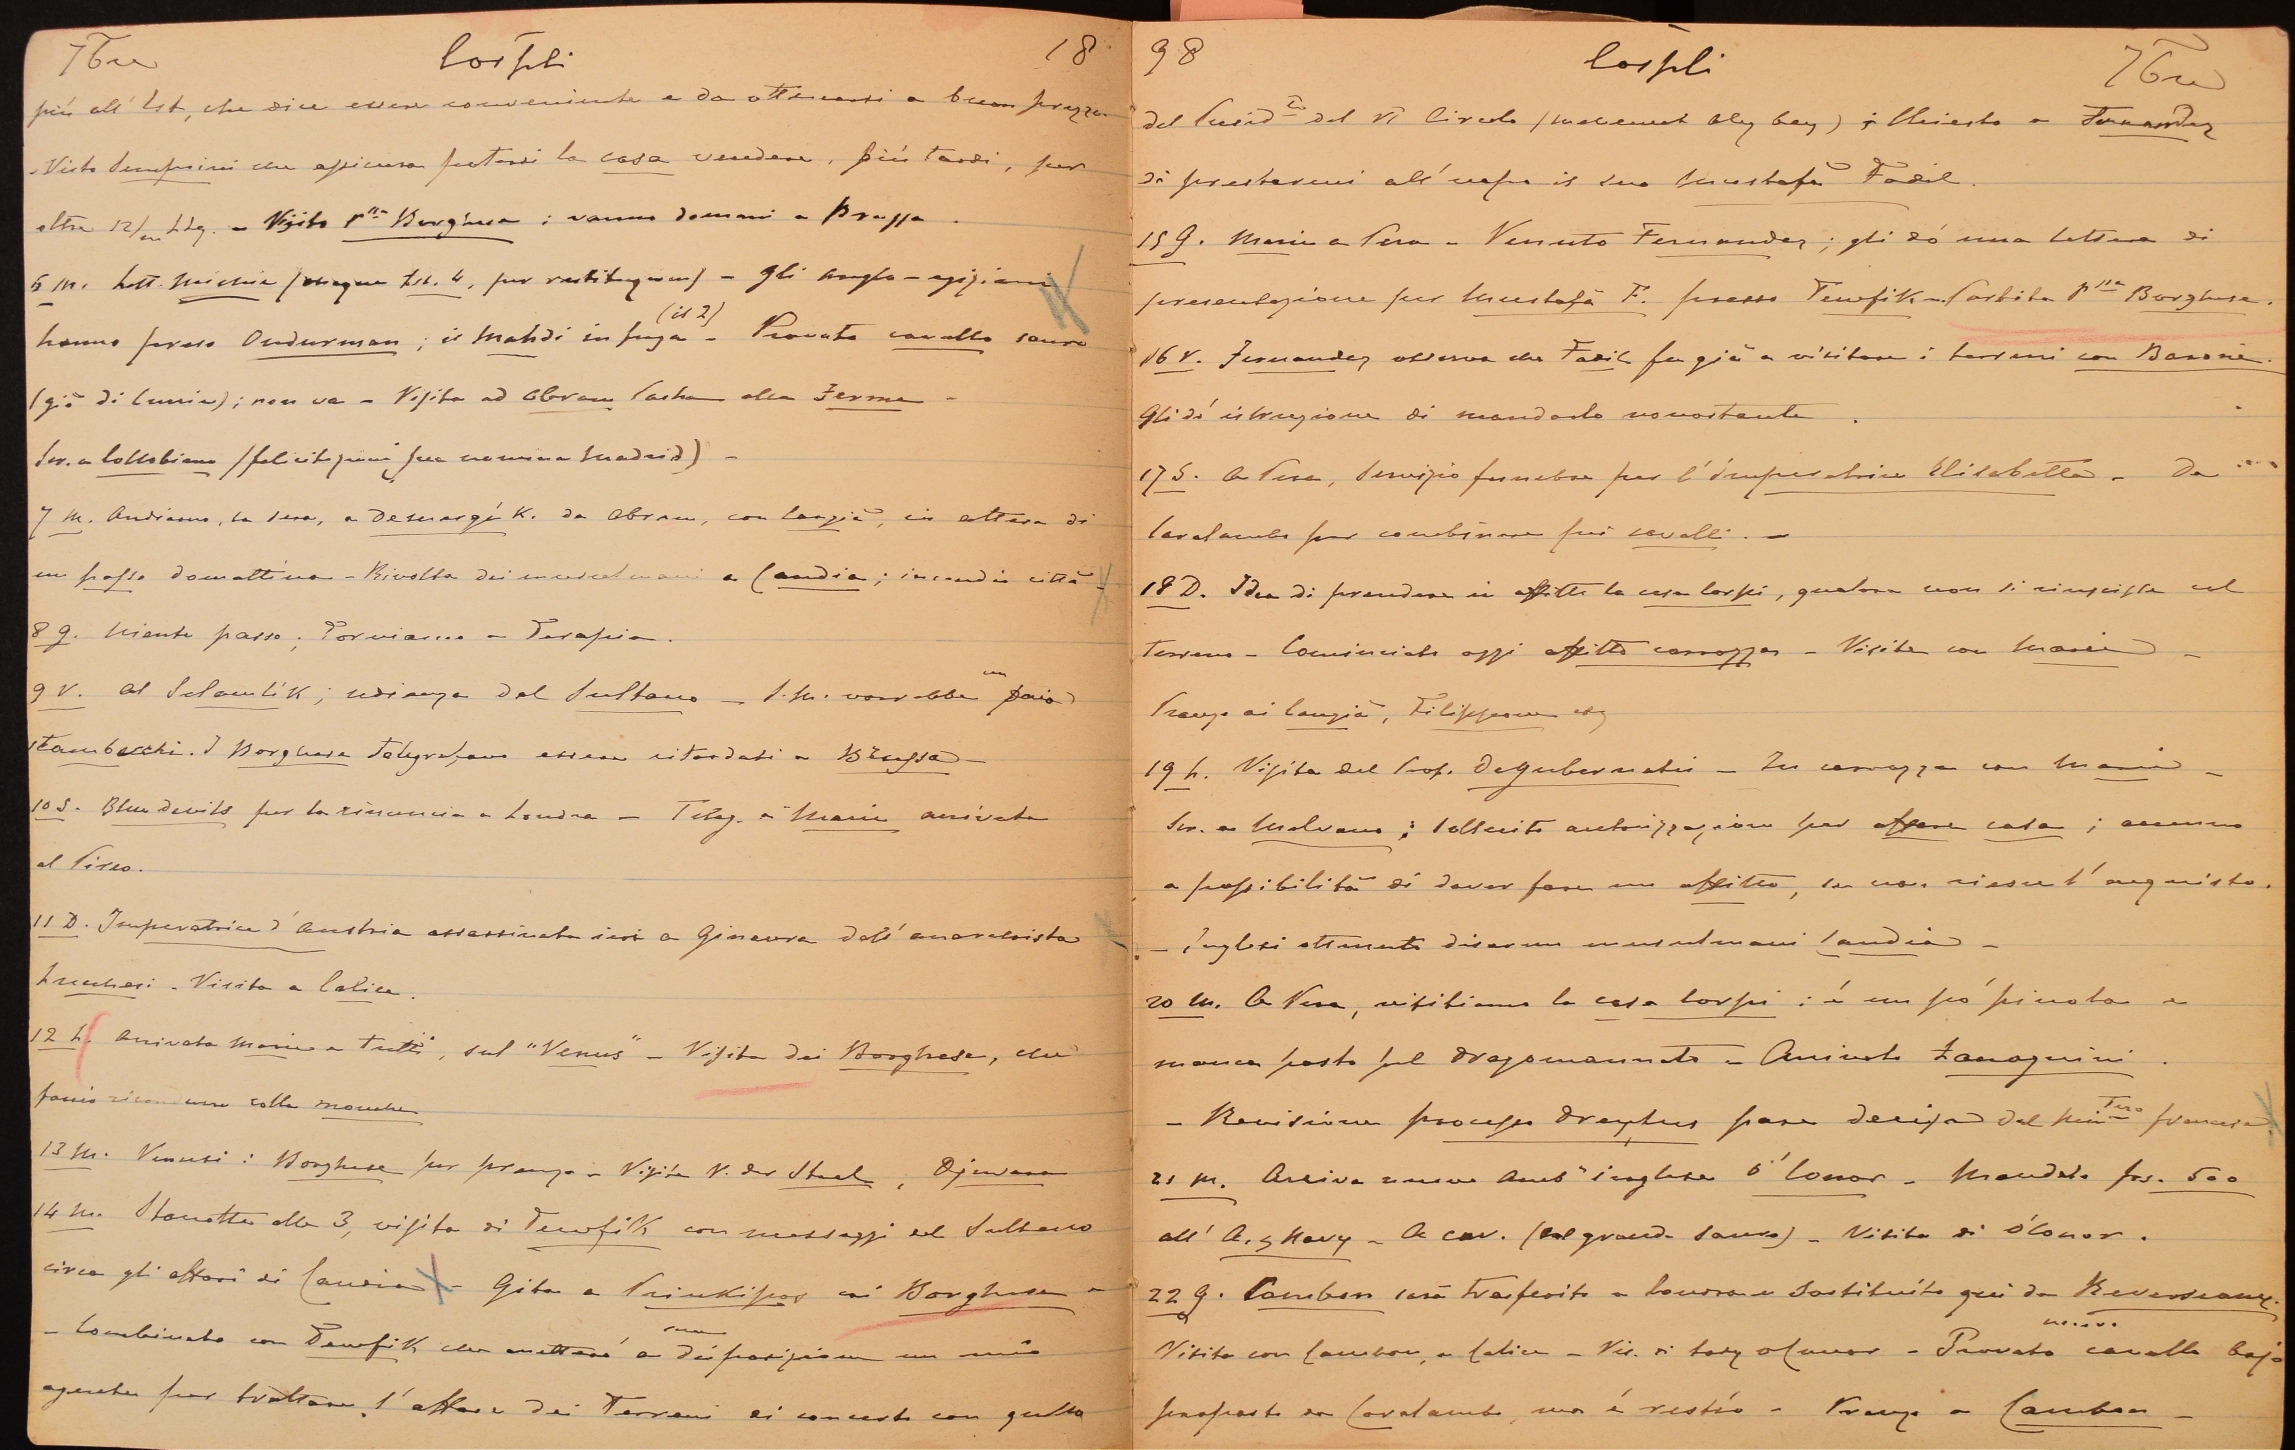 7bre Cospli 18
più all'Est, che dice essere conveniente e da ottenersi a buon prezzo.
- Visto Semprini che assicura potersi la casa vendere, più tardi, per
oltre 12/m Ltq. - Visito Pssa Borghese; vanno domani a Brussa.
6 M. Lett. Michie (magne Lst. 4, per restituzione) - Gli anglo-egiziani
hanno preso Ondurman; il Mahdi in fuga - Provato (il 2) cavallo sauro
(già di Cunin); non va - Visita ad Abram Pacha alla Ferme -
Scr. a Collobiano (felicitazioni sua nomina Madrid) -
7 M. Andiamo, la sera, a Desnargi K. da Abram, con Canzià, in attesa di
un passo domattina - Rivolta dei musulmani a Candia; incendio città -
8 G. Niente passo; Torniamo a Terapia.
9 V. Al Selamlik; udienza dal Sultano - S. M. vorrebbe un paio
stambecchi. I Borghese telegrafano essere ritardati a Brussa -
10 S. Blue devils per la rinuncia a Londra - Teleg. a Marie arrivata
al Pireo.
11 D. Imperatrice d'Austria assassinata ieri a Ginevra dall'anarchista
Luccheni - Visita a Calice.
12 L. Arrivata Marie e tutti, sul "Venus" - Visita dei Borghese, che
faccio ricondurre colla mouche
13 M. Venuti: Borghese per pranzo - Visita V. der Stael, Djevara
14 M. Stanotte alle 3, visita di Tewfik con messaggi del Sultano
circa gli affari di Candia - Gita a Prinkipos coi Borghese -
- Combinato con Tewfik che metterà a sua disposizione un mio
agente per trattare l'affare dei Terreni di concerto con quello
98 Cospli 7bre
del Presidte del VI Circolo (Mehemet Aly bey); Chiesto a Fernandez
di prestarmi all'uopo il suo Mustafà Fazil.
15 G. Marie a Pera - Venuto Fernandez; gli dò una lettera di
presentazione per Mustafà F. presso Tewfik - Partita Pssa Borghese.
16 V. Fernandez osserva che Fazil fu già a visitare i terreni con Barone.
Gli dò istruzione di mandarlo nonostante.
17 S. A Pera, Servizio funebre per l'Imperatrice Elisabetta - Da
Caralambo per combinare pei cavalli. -
18 D. Idea di prendere in affitto la casa Corpi, qualora non si riuscisse col
terreno - Cominciato oggi affitto carrozza - Visite con Marie -
Pranzo ai Canzià, Filippone etc
19 L. Visita del Prof. Degubernatis - In carrozza con Marie -
Scr. a Malvano; sollecito autorizzazione per affare casa; accenno
a possibilità di dover fare un affitto, se non riesce l'acquisto.
- Inglesi ottenuto disarmo musulmani Candia -
20 M. A Pera, visitiamo la casa Corpi: è un pò piccola e
manca posto pel dragomannato - Arrivato Zanagnini.
- Revisione processo Dreyfus pare decisa dal Minitero francese.
21 M. Arriva nuovo Ambe inglese O'Conor - Mandato frs. 500
all'A. & Navy - A cav. (sul grande sauro) - Visita di O'Conor.
22 G. Cambon sarà trasferito a Londra e sostituito qui da Reverseaux.
Visita con Cambon, a Calice - Vis. di Lady O'Conor - Provato nuovo cavallo bajo
proposto da Caralambo, ma è restìo - Pranzo a Cambon -